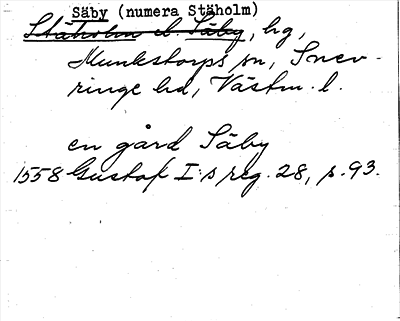 Säby (numera Stäholm)
Stäholm l. Säby, hg,
Munktorps sn, Snev-
ringe hd, Västm. l.
en gård Säby
1558 Gustaf I:s reg. 28, s. 93.